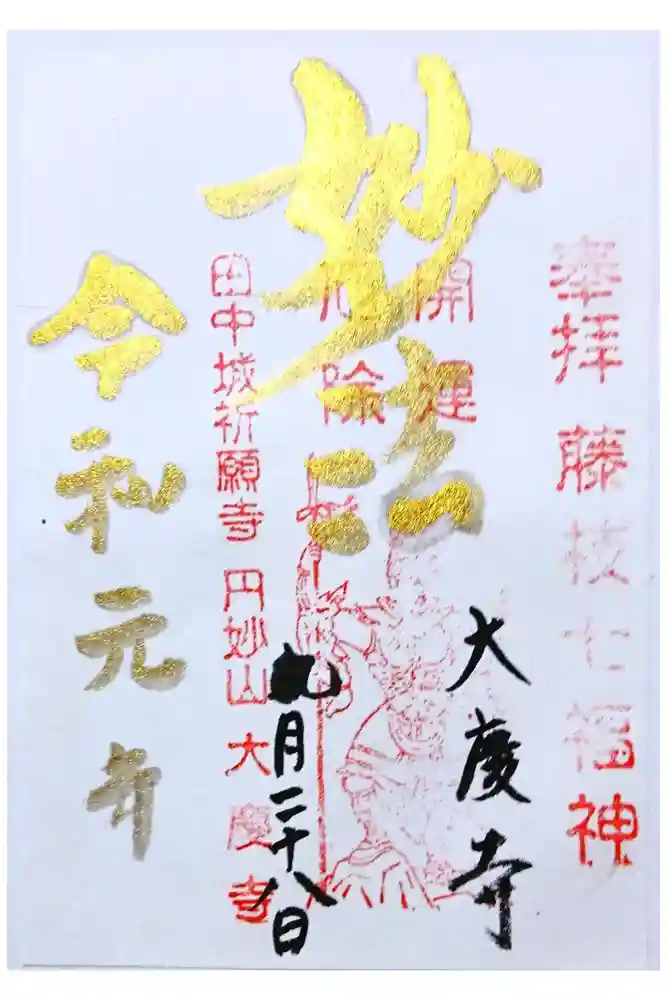 奉拝 藤枝七福神
大慶寺
開運
厄除
妙法
九月二十八日
田中城祈願寺 円妙山 大慶寺
令和元年